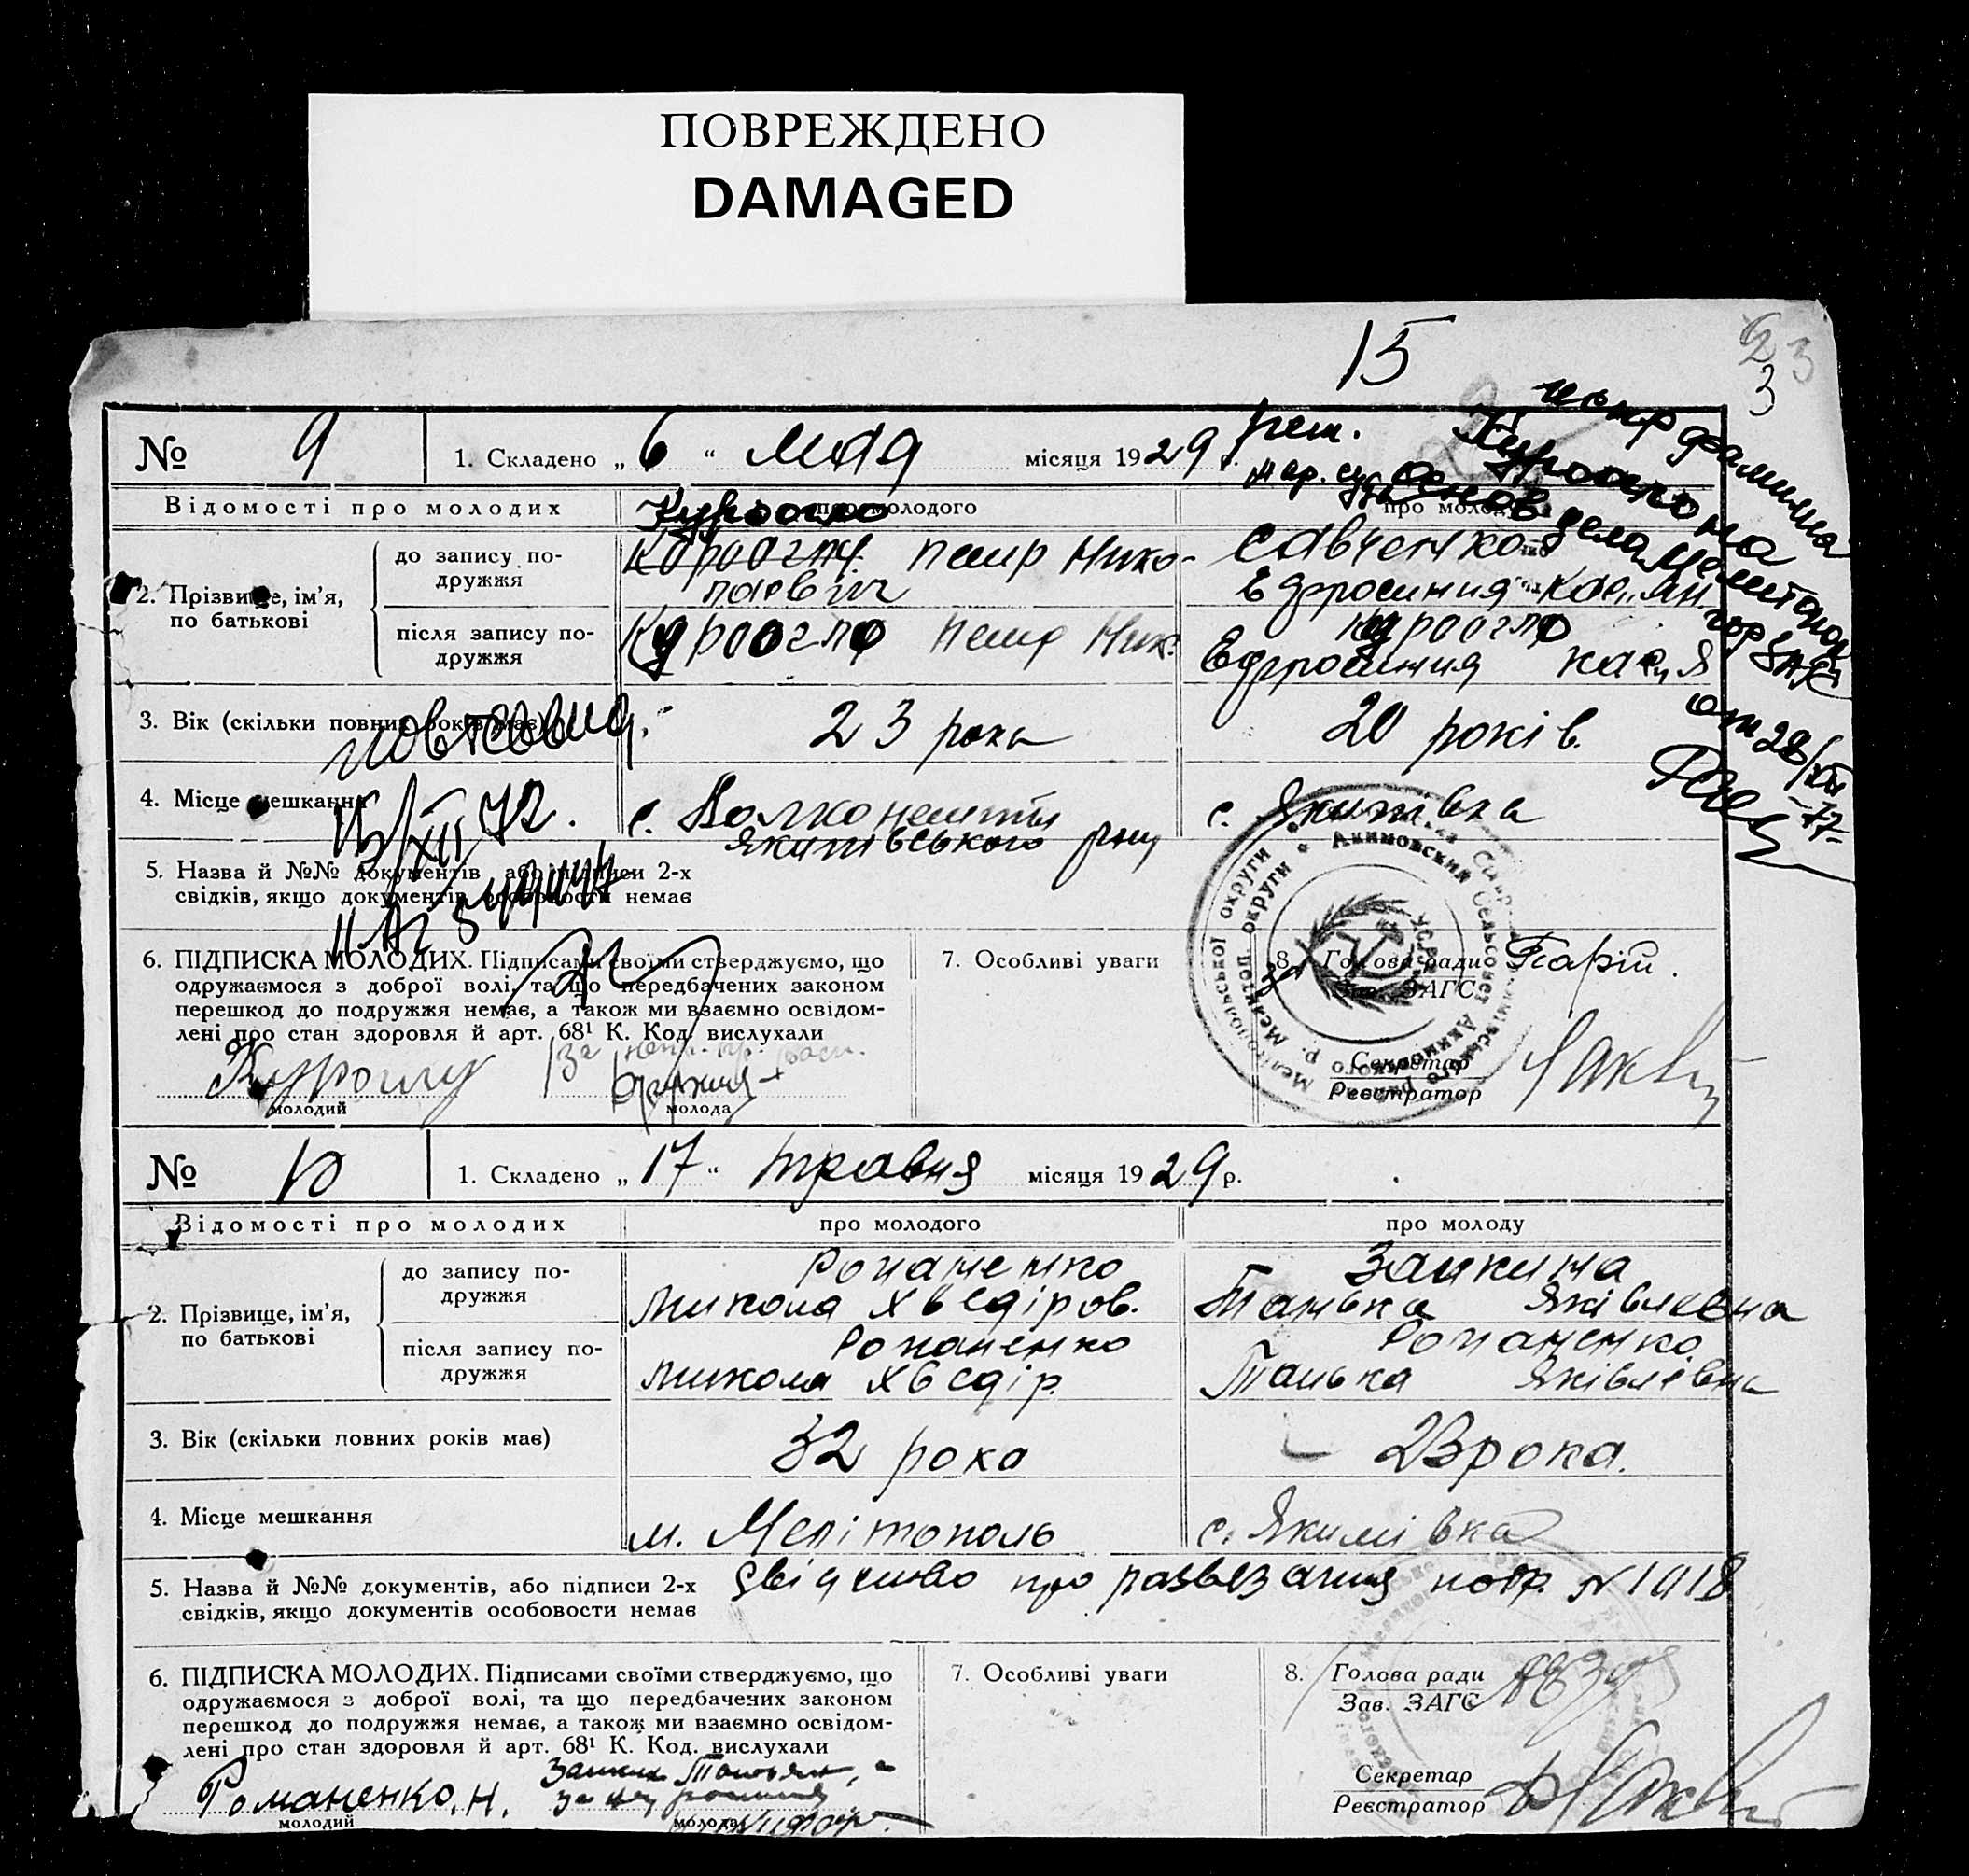 ПОВРЕЖДЕНО
DAMAGED
15
23
3
№ 9 1. Складено „ 6 “ мая місяця 1929 р.
испр фамилия
Куроогло на
реш. нар. суда
основ дела Мелитопол
гор ЗАГС
от 28/XII-77
Відомості про молодих про молодого про молоду
Куроогло
2. Прізвище, ім’я, по батькові
до запису подружжя
Петр Николаевич
Савченко
Ефросиния Касиян.
після запису подружжя
Куроогло Петр Ник.
Куроогло
Ефросиния Кас
3. Вік (скільки повних років має) 23 рока 20 років.
повт свид.
15/XII 72.
4. Місце мешкання с. Якимівського р-ну с. Якимівка
5. Назва й №№ документів або підписи 2-х
свідків, якщо документів особовости немає
6. ПІДПИСКА МОЛОДИХ. Підписами своїми стверджуємо, що
одружаємося з доброї волі, та що передбачених законом
перешкод до подружжя немає, а також ми взаємно освідом-
лені про стан здоровля й арт. 68¹ К. Код. вислухали
молодий молода
7. Особливі уваги
8. Голова ради
Зав. ЗАГС
Секретар
Реєстратор
№ 10 1. Складено „ 17 “ травня місяця 1929 р.
Відомості про молодих про молодого про молоду
2. Прізвище, ім’я, по батькові
до запису подружжя
Романенко
Микола Хведіров.
Заикина
Танька Яківлевна
після запису подружжя
Романенко
Микола Хведір.
Романенко
Танька Яківлівна
3. Вік (скільки повних років має) 32 рока 23 рока.
4. Місце мешкання м. Мелітополь с. Якимівка
5. Назва й №№ документів, або підписи 2-х
свідків, якщо документів особовости немає
про развезания подр. №1918
6. ПІДПИСКА МОЛОДИХ. Підписами своїми стверджуємо, що
одружаємося з доброї волі, та що передбачених законом
перешкод до подружжя немає, а також ми взаємно освідом-
лені про стан здоровля й арт. 68¹ К. Код. вислухали
Романенко. Н.
молодий молода
7. Особливі уваги
8. Голова ради
Зав. ЗАГС
Секретар
Реєстратор